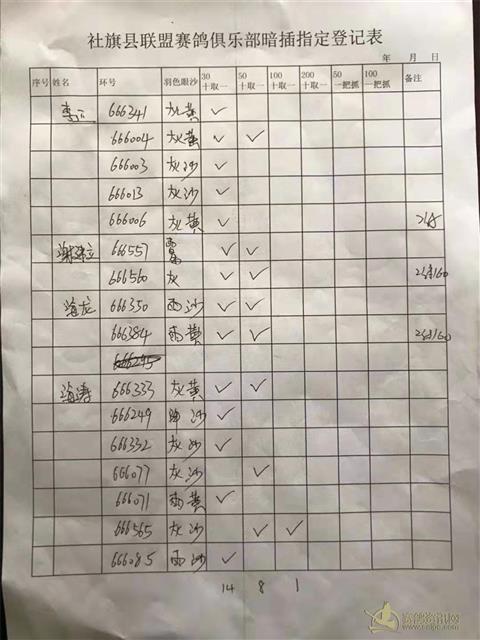 社旗县联盟赛鸽俱乐部暗插指定登记表
年 月 日
序号 姓名 环号 羽色眼沙 30十取一 50十取一 100十取一 200十取一 50一把抓 100一把抓 备注
666341 灰黄 ✓
666004 灰黄 ✓ ✓
666003 灰沙 ✓
666013 灰沙 ✓
666006 灰黄 ✓
666557 ✓ ✓
666560 灰 ✓ ✓ 2羽160
海龙 666350 雨沙 ✓ ✓
666384 雨黄 ✓ ✓ 2羽160
海涛 666333 灰黄 ✓ ✓
666249 沙 ✓
666332 灰沙 ✓
666077 灰沙 ✓
666071 雨黄 ✓
666565 灰沙 ✓ ✓
666085 雨沙 ✓
14 8 1
赛鸽资讯网